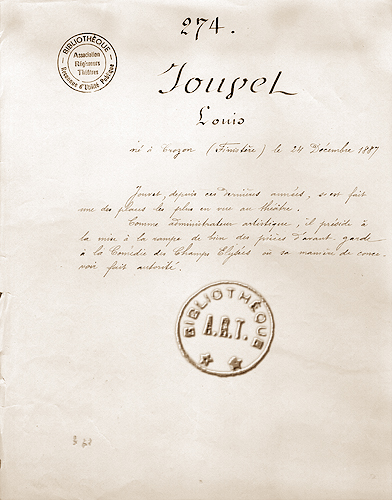 274.
BIBLIOTHÈQUE
Association
Régisseurs
Théâtres
Reconnue d'Utilité Publique
Jouvet
Louis
né à Crozon (Finistère) le 24 Décembre 1887
Jouvet, depuis ces dernières années, s'est fait
une des places les plus en vue au théâtre.
Comme administrateur artistique, il préside à
la mise à la rampe de bien des pièces d'avant garde
à la Comédie des Champs Elysées où sa manière de conce-
voir fait autorité.
BIBLIOTHÈQUE
A.R.T.